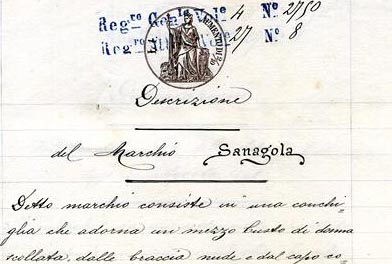 Regro Genle Vole 4 No 2750
Regro Vole 27 No 8
AUMENTO DI 2/10
Descrizione
del Marchio Sanagola
Detto marchio consiste in una conchi-
glia che adorna un mezzo busto di donna
scollata, dalle braccia nude e dal capo co-